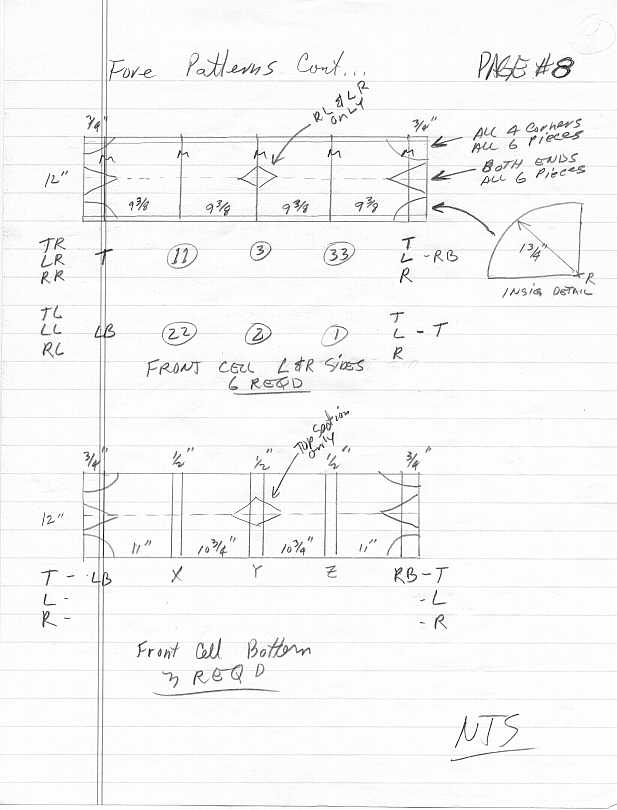 Fore Patterns Cont... PAGE #8
RL & LR
only
3/4" 3/4"
ALL 4 Corners
ALL 6 Pieces
M M M M M
BOTH ENDS
ALL 6 Pieces
12"
9 3/8 9 3/8 9 3/8 9 3/8
1 3/4"
R
INSIG DETAIL
TR T
LR T 11 3 33 L - RB
RR R
TL T
LL LB 22 2 1 L - T
RL R
FRONT CELL L & R SIDES
6 REQD
Top Section
only
3/4" 1/2" 1/2" 1/2" 3/4"
12"
11" 10 3/4" 10 3/4" 11"
T - LB X Y Z RB - T
L - - L
R - - R
Front Cell Bottem
3 REQD
NTS